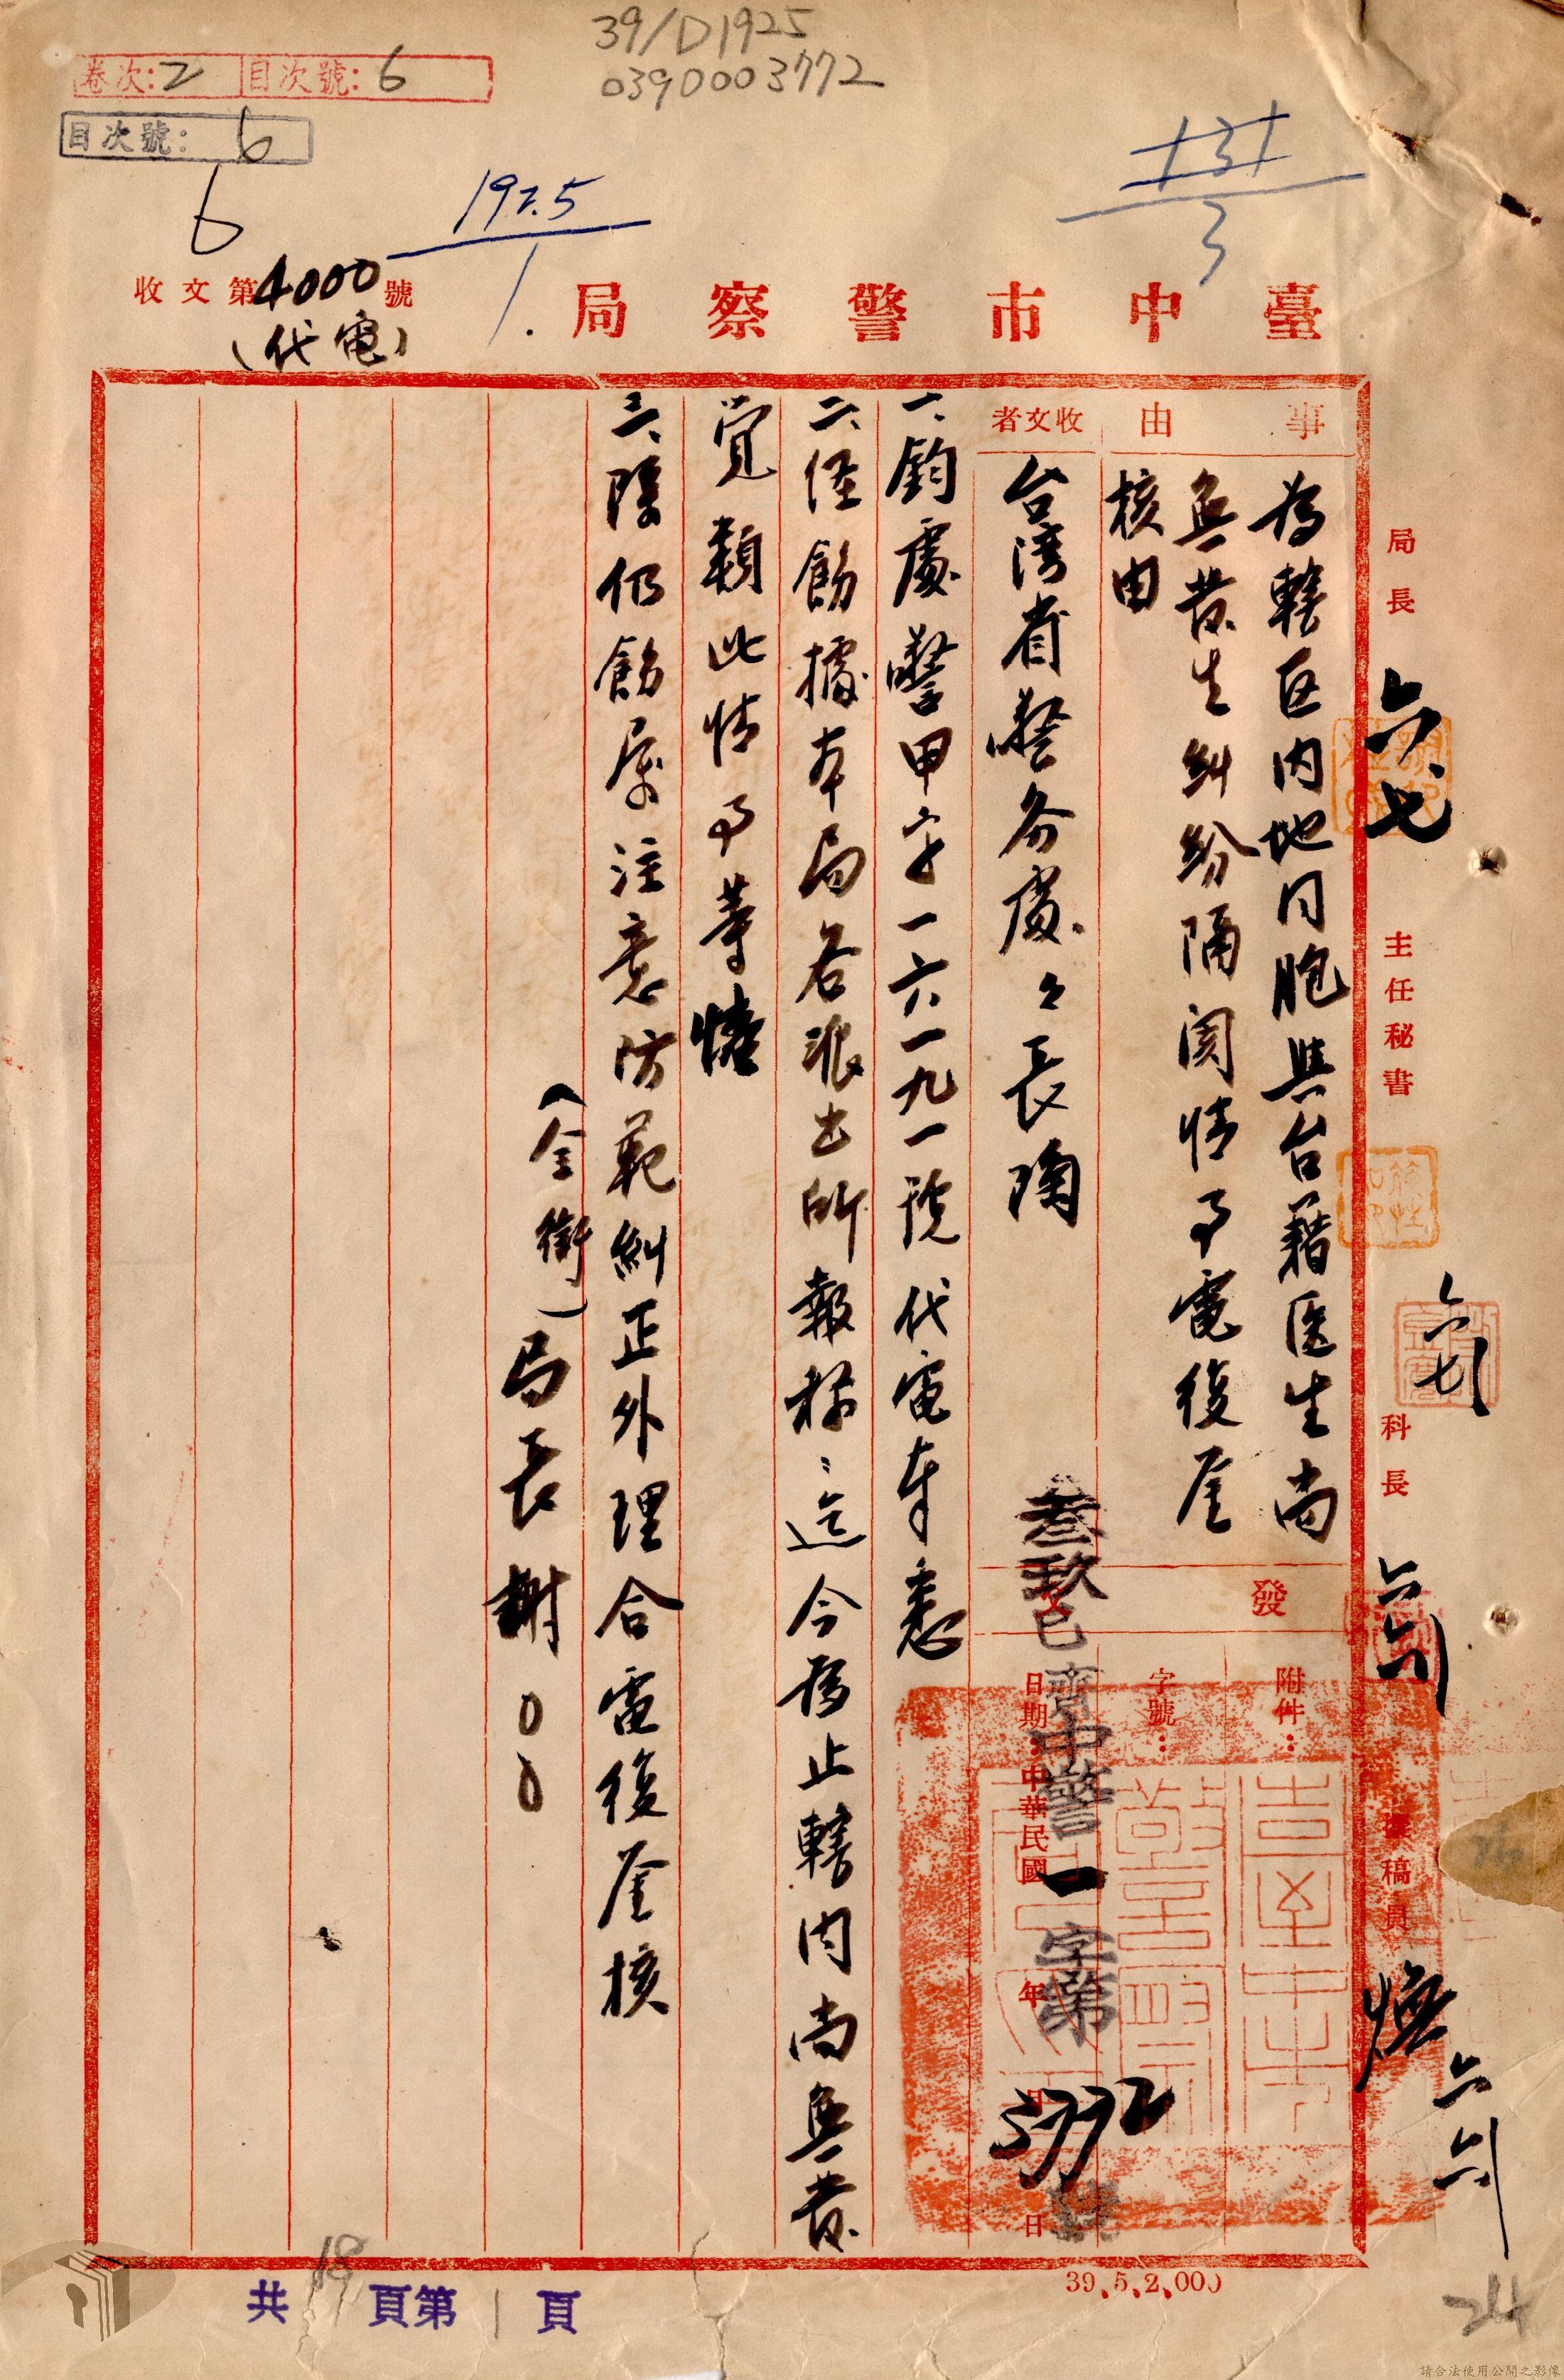 39/D1925
0390003772
卷次:2 目次號:6
目次號:6
6
197.5
1.
131
3
收文第4000號
(代電)
臺中市警察局
事由
為轄区内地同胞與台籍医生尚
無發生糾紛隔閡情事電復鑒
核由
收文者
台湾省警务處々長陶
發
附件:
字號:
日期:中華民國 年 月 日
叁玖巳齊中警一字第5772號
一、鈞處警甲字一六一九一號代電奉悉
二、經飭據本局各派出所報稱:迄今為止轄内尚無發
覚類此情事等情
三、除仍飭屬注意防範糾正外理合電復鑒核
(全銜)局長謝00
局長
六七
主任秘書
六七
科長
六六
擬稿員
六六
共18頁第1頁
39.5.2.000
24
請合法使用公開之影像